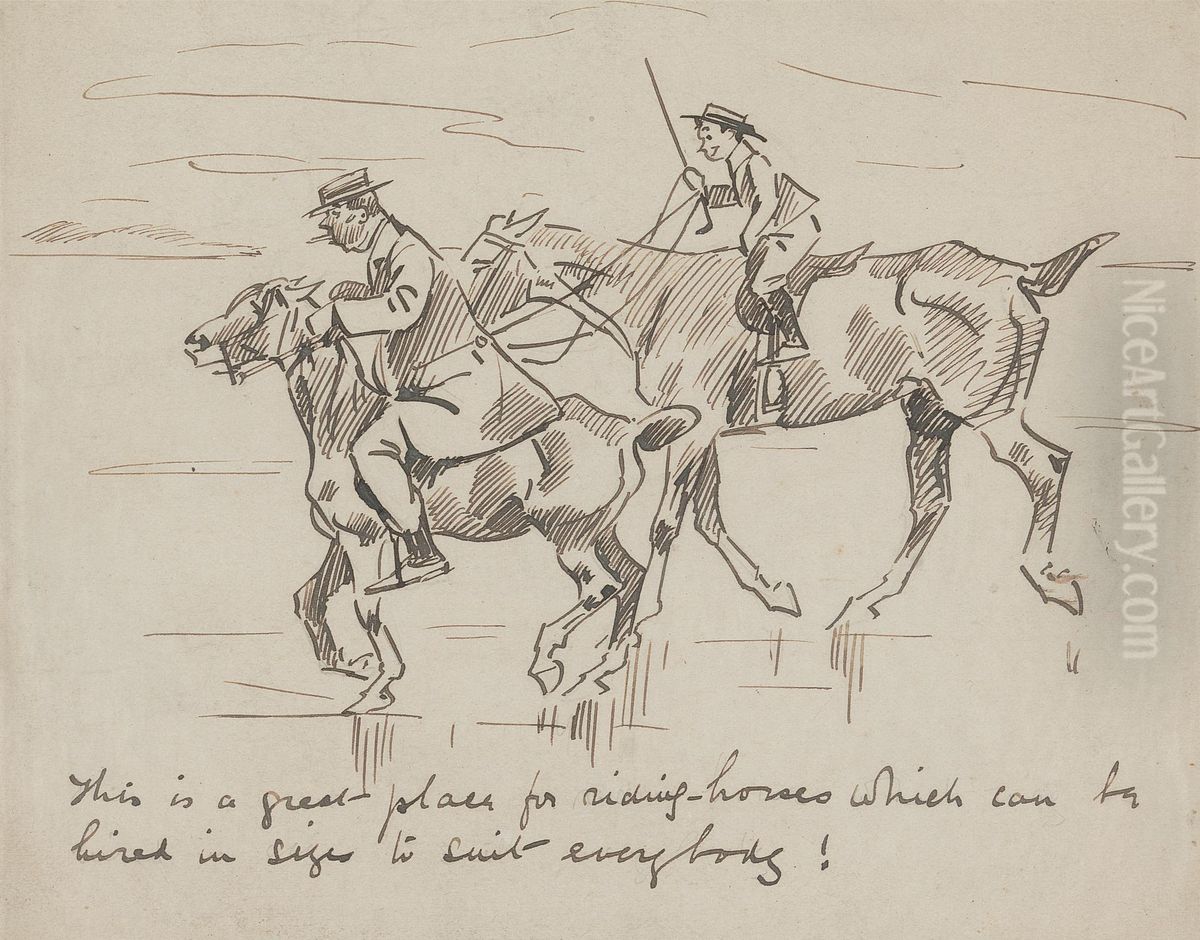 This is a great place for riding-horses which can be
hired in sizes to suit everybody!
NiceArtGallery.com